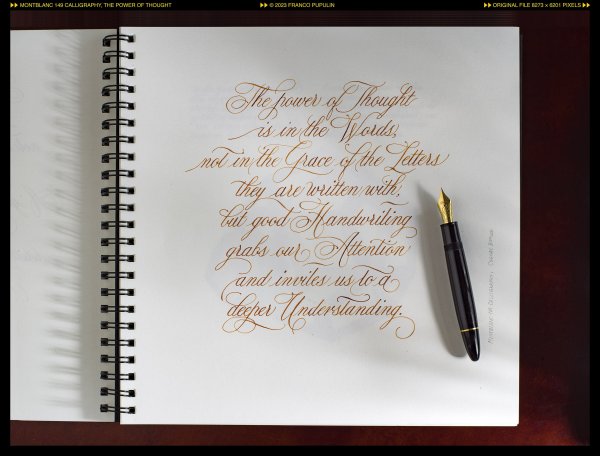 MONTBLANC 149 CALLIGRAPHY, THE POWER OF THOUGHT
© 2023 FRANCO PUPULIN
ORIGINAL FILE 8273 x 6201 PIXELS
The power of Thought
is in the Words,
not in the Grace of the Letters
they are written with,
but good Handwriting
grabs our Attention
and invites us to a
deeper Understanding.